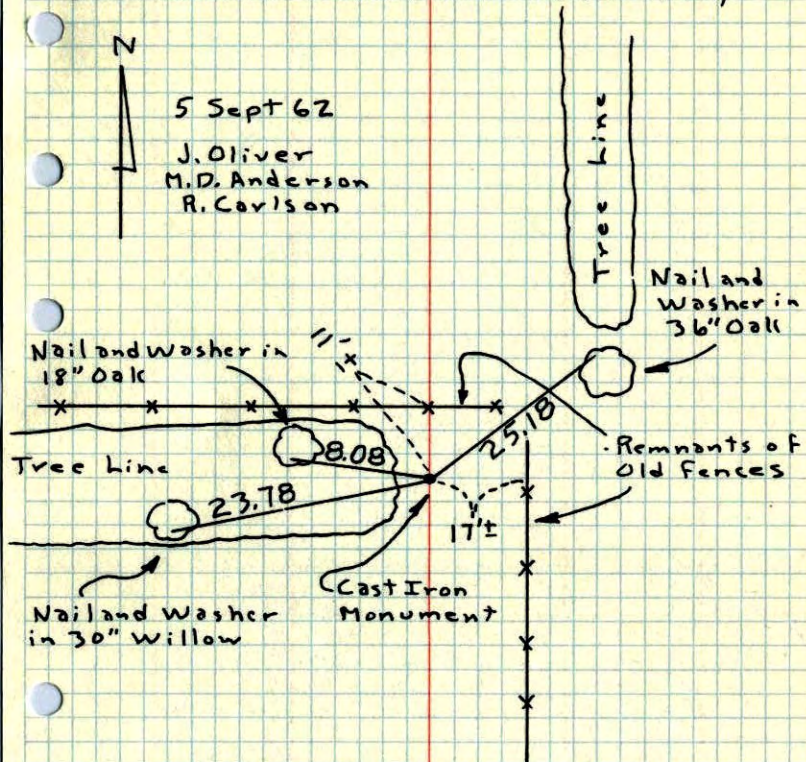 N
5 Sept 62
J. Oliver
M.D. Anderson
R. Carlson
Tree Line
Nail and
Washer in
36" Oak
11'
Nail and Washer in
18" Oak
25.18
8.08
Tree Line
Remnants of
Old Fences
23.78
17'±
Cast Iron
Monument
Nail and Washer
in 30" Willow